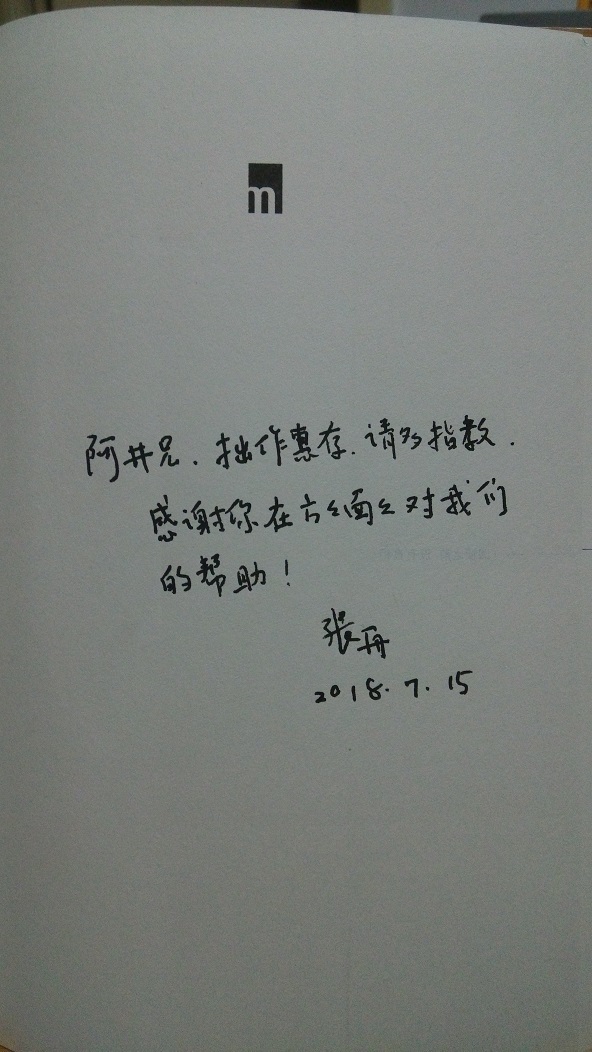 m
阿井兄、拙作惠存、请多指教.
感谢你在方方面面对我们
的帮助！
张冊
2018.7.15